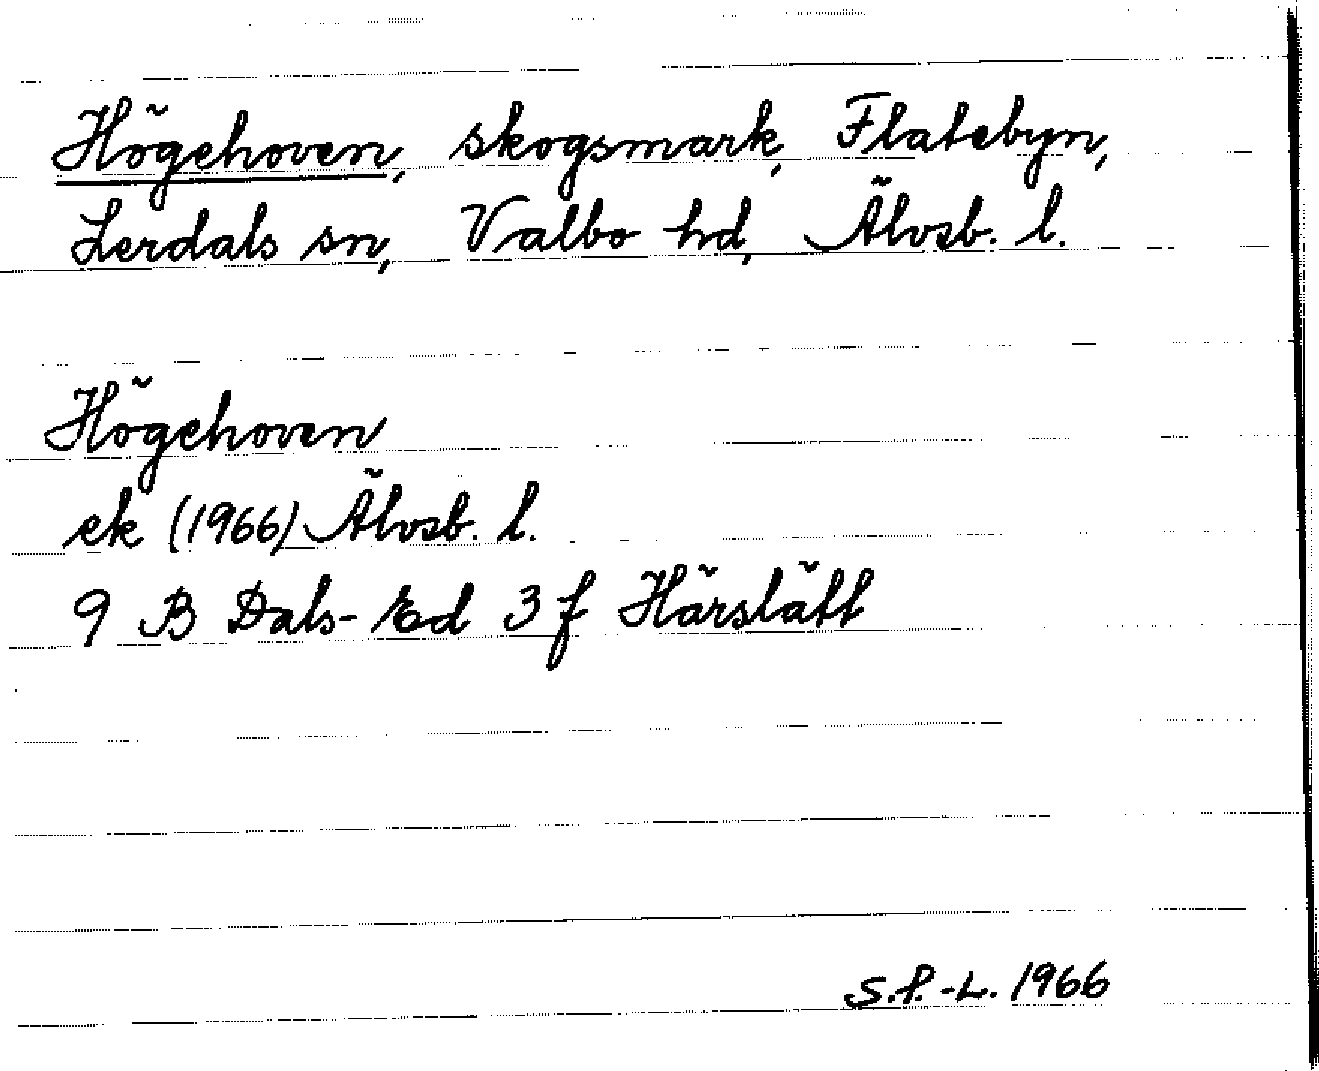 Högehoven, skogsmark, Flatebyn,
Lerdals sn, Valbo hd, Älvsb. l.
Högehoven
ek (1966) Älvsb. l.
9 B Dals-Ed 3 f Härslätt
S.P.-L. 1966